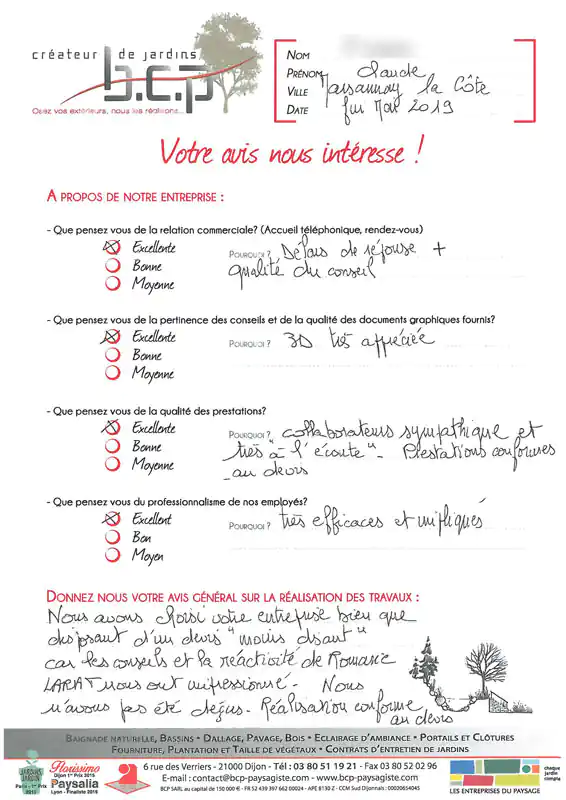 créateur de jardins
b.c.p
Osez vos extérieurs, nous les réalisons...
NOM
PRÉNOM Claude
VILLE Marsannay la Côte
DATE fin Mai 2019
Votre avis nous intéresse !
A PROPOS DE NOTRE ENTREPRISE :
- Que pensez vous de la relation commerciale? (Accueil téléphonique, rendez-vous)
Excellente
Bonne
Moyenne
POURQUOI ? Délais de réponse +
qualité du conseil
- Que pensez vous de la pertinence des conseils et de la qualité des documents graphiques fournis?
Excellente
Bonne
Moyenne
POURQUOI ? 3D très appréciée
- Que pensez vous de la qualité des prestations?
Excellente
Bonne
Moyenne
POURQUOI ? collaborateurs sympathique et
très "à l'écoute" - Prestations conformes
au devis
- Que pensez vous du professionnalisme de nos employés?
Excellent
Bon
Moyen
POURQUOI ? très efficaces et impliqués
DONNEZ NOUS VOTRE AVIS GÉNÉRAL SUR LA RÉALISATION DES TRAVAUX :
Nous avons choisi votre entreprise bien que
disposant d'un devis "moins disant"
car les conseils et la réactivité de Romaric
LARAT nous ont impressionné. Nous
n'avons pas été déçus. Réalisation conforme
au devis
BAIGNADE NATURELLE, BASSINS • DALLAGE, PAVAGE, BOIS • ECLAIRAGE D'AMBIANCE • PORTAILS ET CLÔTURES
FOURNITURE, PLANTATION ET TAILLE DE VÉGÉTAUX • CONTRATS D'ENTRETIEN DE JARDINS
JARDINS JARDIN
Paris - 1er Prix 2015
Florissimo
Dijon 1er Prix 2015
Paysalia
Lyon - Finaliste 2015
6 rue des Verriers - 21000 Dijon - Tél : 03 80 51 19 21 - Fax 03 80 52 02 96
E-mail : contact@bcp-paysagiste.com - www.bcp-paysagiste.com
BCP SARL au capital de 150 000 € - FR 52 439 397 662 00024 - APE 8130 Z - CCM Sud Dijonnais : 00020654045
LES ENTREPRISES DU PAYSAGE
chaque
jardin
compte